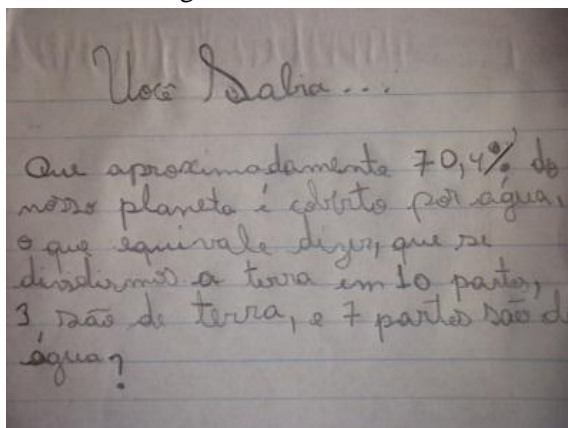 Você Sabia...
Que aproximadamente 70,4% do
nosso planeta é coberto por água,
o que equivale dizer, que se
dividirmos a terra em 10 partes,
3 são de terra, e 7 partes são d
água?